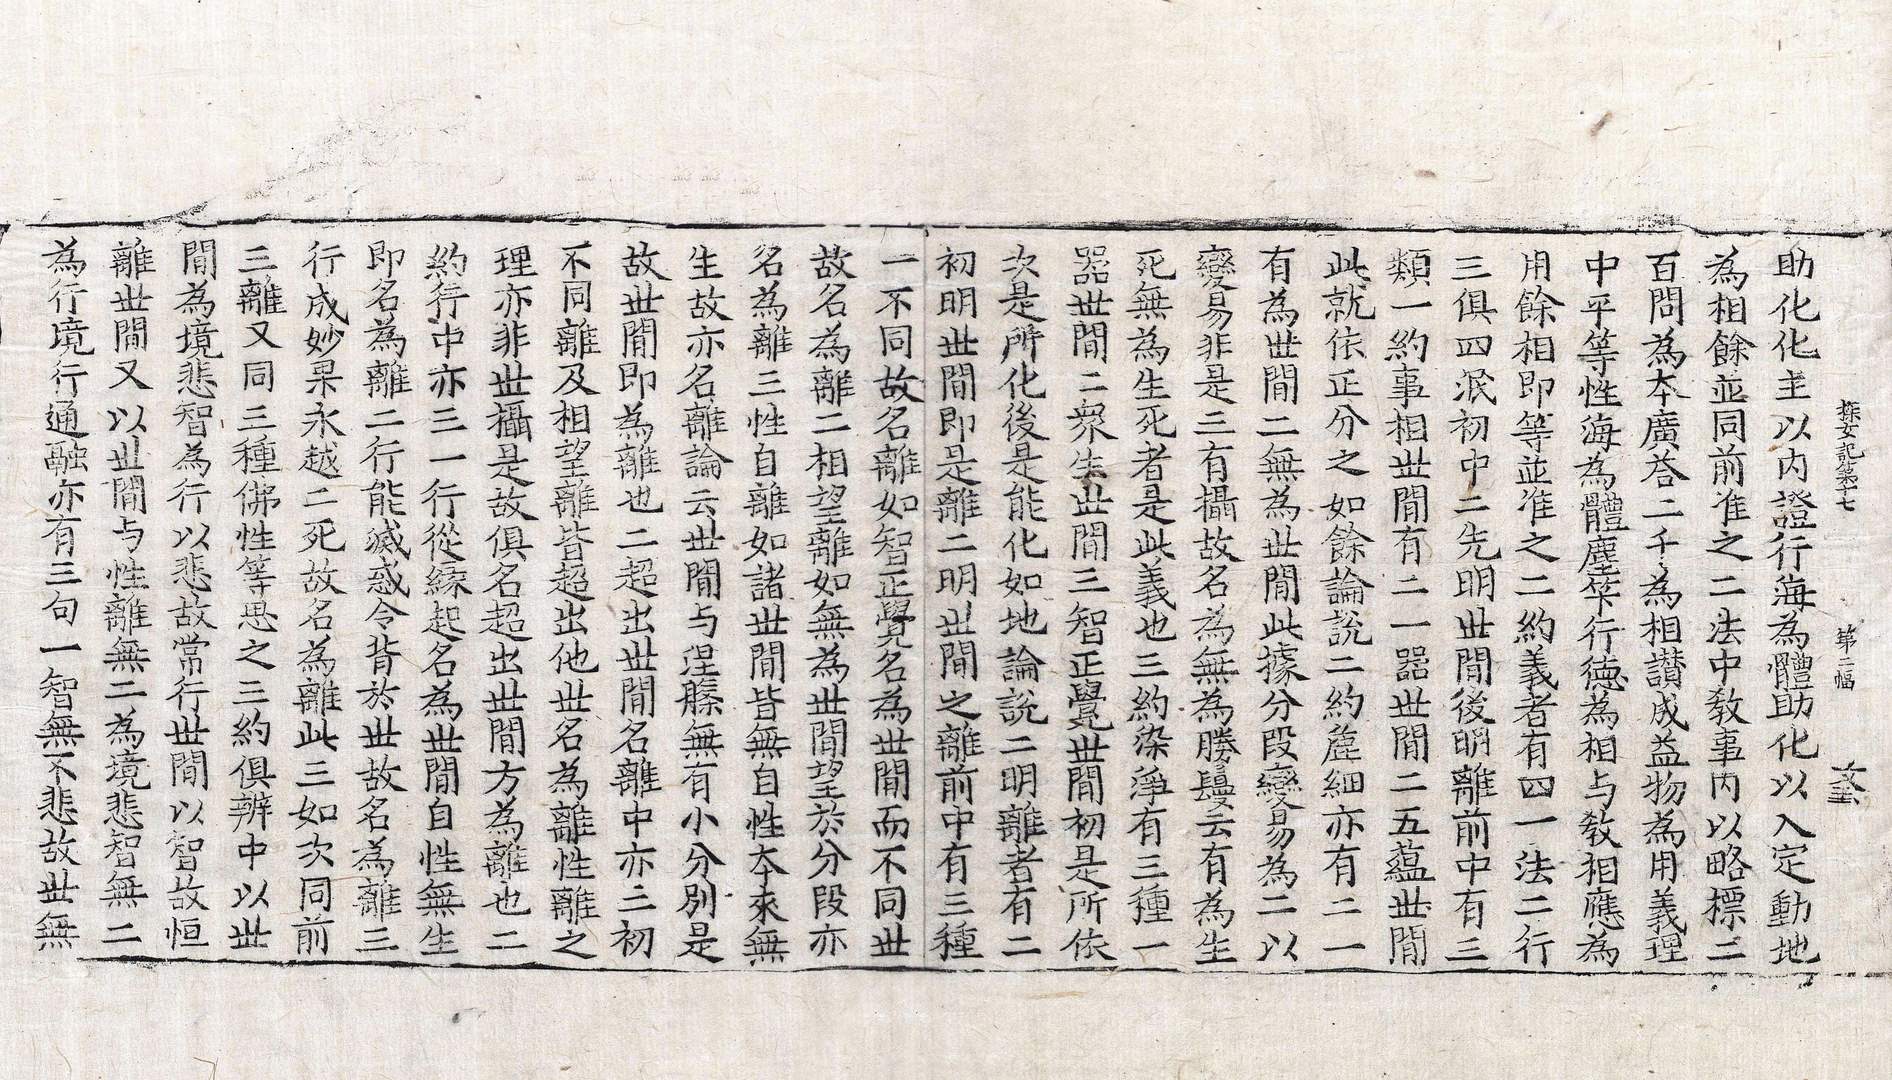 探玄記第十七　第二幅　文
助化化主以内證行海為體助化以入定動地
為相餘並同前准之二法中教事内以略標二
百問為本廣荅二千為相讃成益物為用義理
中平等性海為體塵筭行德為相与教相應為
用餘相即等並准之二約義者有四一法二行
三俱四泯初中二先明世間後明離前中有三
類一約事相世間有二一器世間二五蘊世間
此就依正分之如餘論說二約麁細亦有二一
有為世間二無為世間此據分段變易為二以
變易非是三有攝故名為無為勝鬘云有為生
死無為生死者是此義也三約染淨有三種一
器世間二衆生世間三智正覺世間初是所依
次是所化後是能化如地論說二明離者有二
初明世間即是離二明世間之離前中有三種
一不同故名離如智正覺名為世間而不同世
故名為離二相望離如無為世間望於分段亦
名為離三性自離如諸世間皆無自性本來無
生故亦名離論云世間与涅槃無有小分別是
故世間即為離也二超出世間名離中亦三初
不同離及相望離皆超出他世名為離性離之
理亦非世攝是故俱名超出世間方為離也二
約行中亦三一行從緣起名為世間自性無生
即名為離二行能滅惑令背於世故名為離三
行成妙果永越二死故名為離此三如次同前
三離又同三種佛性等思之三約俱辨中以世
間為境悲智為行以悲故常行世間以智故恒
離世間又以世間与性離無二為境悲智無二
為行境行通融亦有三句一智無不悲故世無